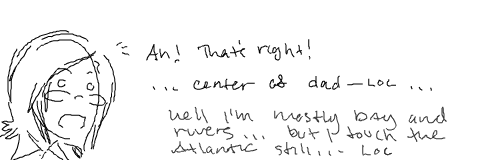 Ah! That's right!
... center of dad—LOC ...
well I'm mostly bay and
rivers... but I touch the
Atlantic still... LOC